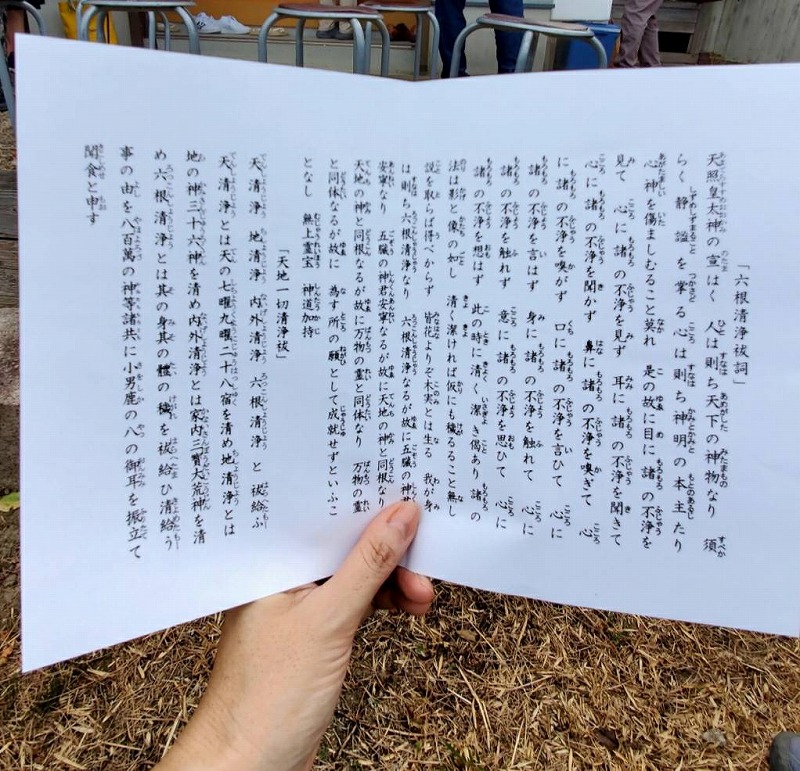 「六根清浄祓詞」
天照皇太神の宣はく　人は則ち天下の神物なり　須
らく静謐を掌る心は則ち神明の本主たり
心神を傷ましむること莫れ　是の故に目に諸の不浄を
見て　心に諸の不浄を見ず　耳に諸の不浄を聞きて
心に諸の不浄を聞かず　鼻に諸の不浄を嗅ぎて　心
に諸の不浄を嗅がず　口に諸の不浄を言ひて　心に
諸の不浄を言はず　身に諸の不浄を触れて　心に
諸の不浄を触れず　意に諸の不浄を思ひて　心に
諸の不浄を想はず　此の時に清く潔き偈あり　諸の
法は影と像の如し　清く潔ければ仮にも穢るること無し
説を取らば得べからず　皆花よりぞ木実とは生る　我が身
は則ち六根清浄なり　六根清浄なるが故に五臓の神
安寧なり　五臓の神君安寧なるが故に天地の神と同根なり
天地の神と同根なるが故に万物の霊と同体なり　万物の霊
と同体なるが故に　為す所の願として成就せずといふこ
となし　無上霊宝　神道加持
「天地一切清浄祓」
天清浄　地清浄　内外清浄　六根清浄　と　祓給ふ
天清浄とは天の七曜九曜二十八宿を清め地清浄とは
地の神三十六神を清め内外清浄とは家内三寳大荒神を清
め六根清浄とは其の身其の體の穢を祓給ひ清給う
事の由を八百萬の神等諸共に小男鹿の八の御耳を振立て
聞食と申す